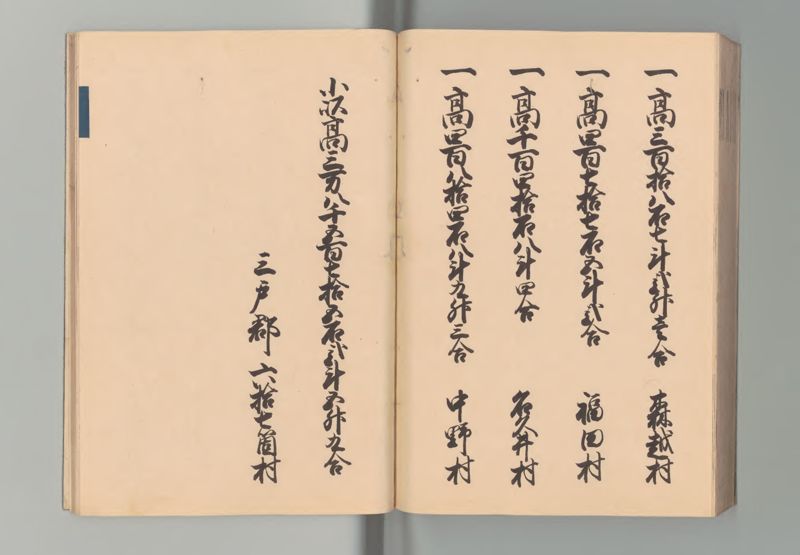 一高三百拾八石七斗弐升壱合 森越村
一高四百七拾七石五斗弐合 福田村
一高千百四拾石八斗四合 名久井村
一高四百八拾四石八斗九升三合 中野村
小以高三万八千五百七拾五石弐斗五升九合
三戸郡六拾七箇村